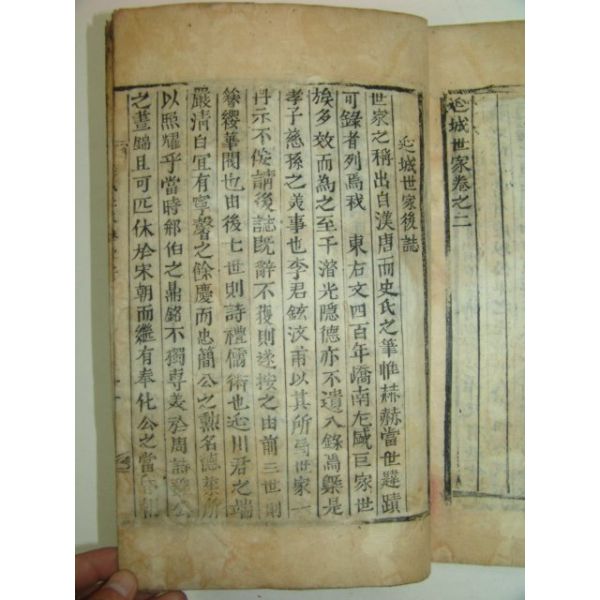 延城世家卷之二
延城世家後誌
世家之稱出自漢唐而史氏之筆惟赫赫當世韙蹟
可錄者列焉我 東右文四百年嶠南尤盛巨家世
族多效而為之至于潛光隱德亦不遺入錄焉槩是
孝子慈孫之美事也李君鉉汶甫以其所爲世家一
示不佞請後誌旣辭不獲則遂按之由前三世則
簪纓華閥也由後七世則詩禮儒術也延川君之端
嚴清白宜有寧馨之餘慶而忠簡公之勳名德業所
以照耀乎當時郇伯之鼎銘不獨專美於周
之晝錦且可匹休於宋朝而繼有奉化公之當